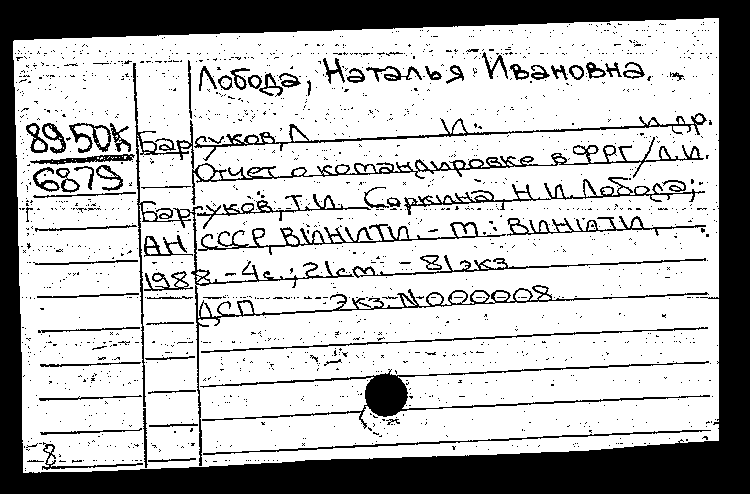 Лобода, Наталья Ивановна.
89-50К
6879
Барсуков, Л И. и др.
Отчет о командировке в ФРГ / Л.И.
Барсуков, Т.И. Соркина, Н.И. Лобода;
АН СССР, ВИНИТИ. - М.: ВИНИТИ,
1988. - 4с.; 21см. - 81экз.
ДСП Экз. N000008
8